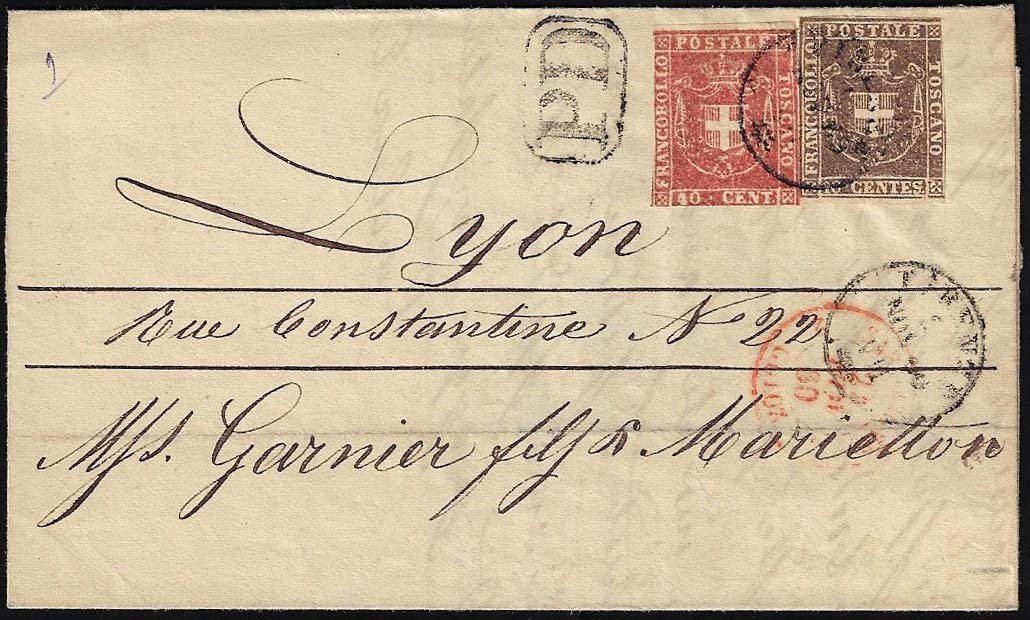 1
PD
FRANCOBOLLO POSTALE TOSCANO
40 CENT
FRANCOBOLLO POSTALE TOSCANO
CENTES
Lyon
Rue Constantine N 22
FIRENZE
60
Garnier fils & Marietton